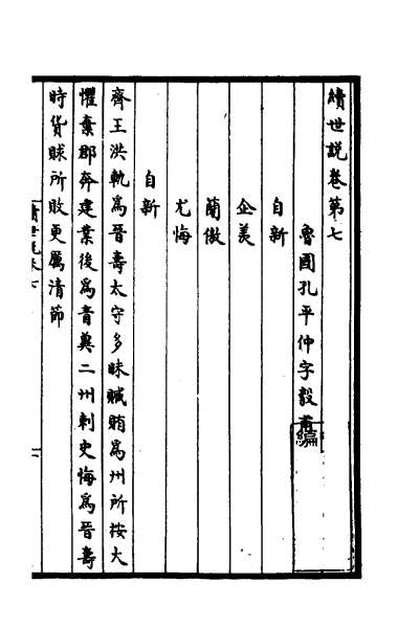 續世說卷第七
魯國孔平仲字毅甫編
自新
企羨
簡傲
尤悔
自新
齊王洪軌為晉壽太守多昧贓賄為州所按大
懼棄郡奔建業後為青冀二州刺史悔為晉壽
時貨賕所敗更厲清節